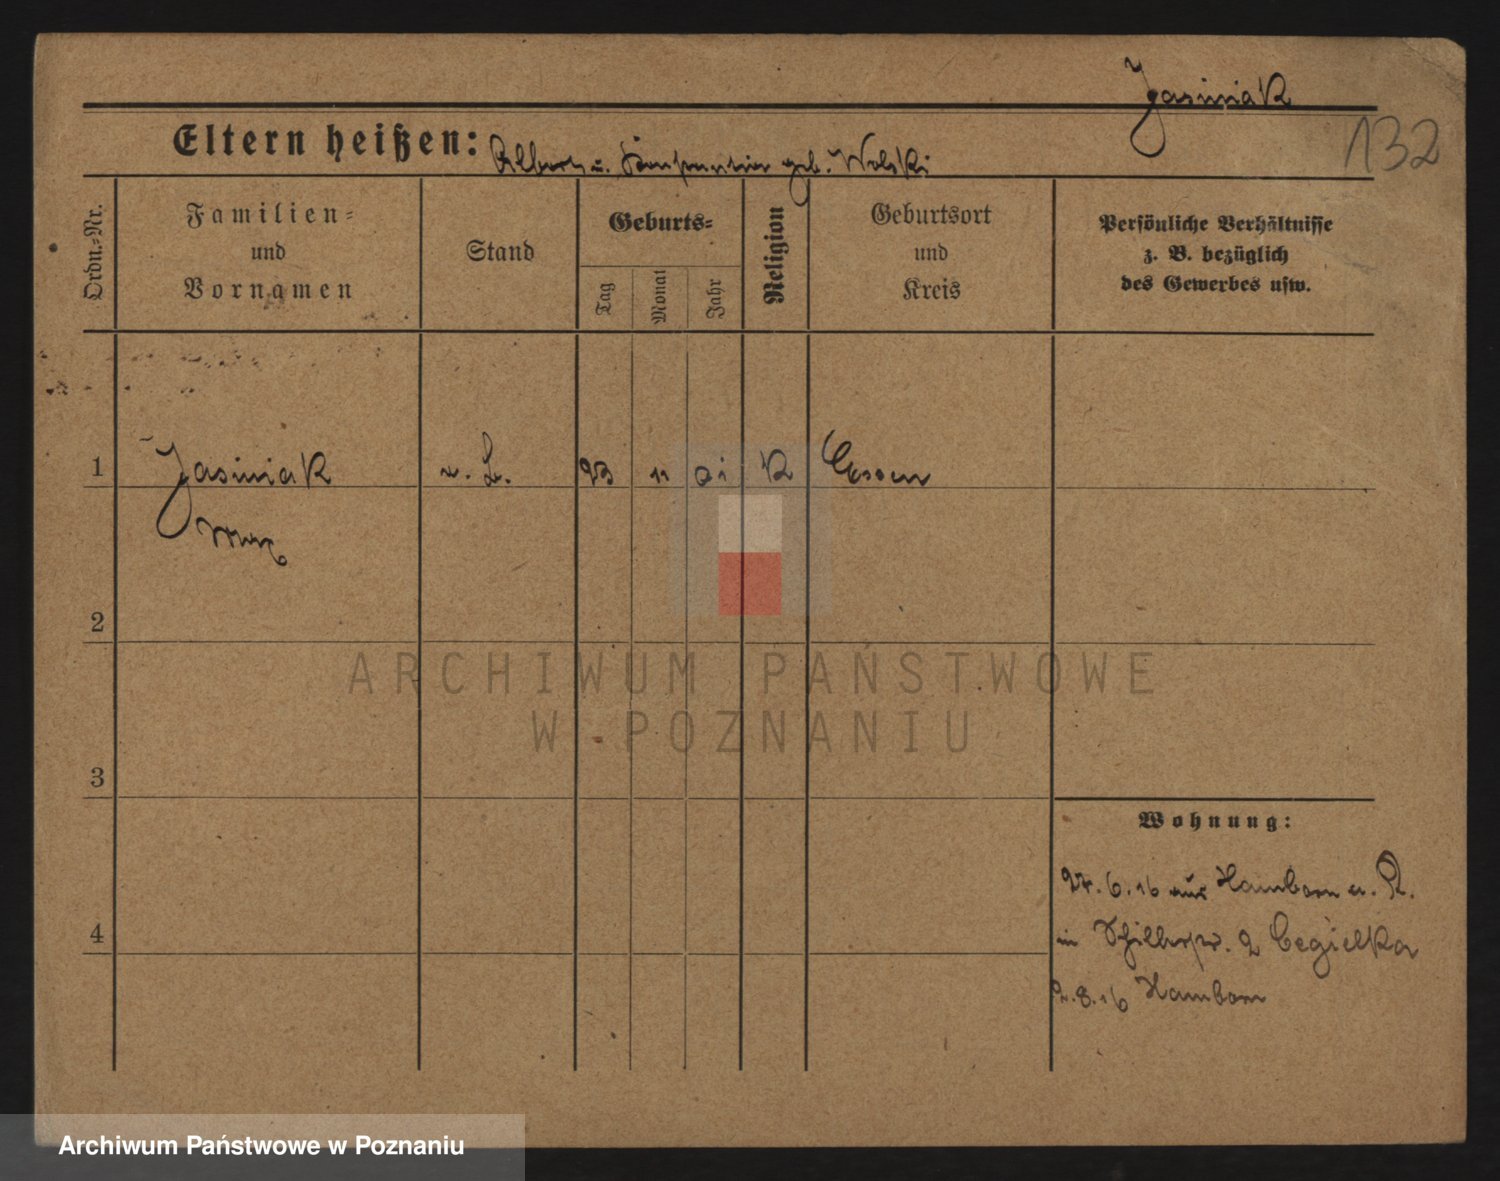 Jasiniak
132
Eltern heißen: Albert u. geb. Wolski
Ordn.-Nr.
Familien-
und
Vornamen
Stand
Geburts-
Tag
Monat
Jahr
Religion
Geburtsort
und
Kreis
Persönliche Verhältnisse
z. B. bezüglich
des Gewerbes usw.
1 Jasiniak 23 11 01 K Essen
Max
2
3
4
Wohnung:
27.6.16 aus Hamborn a. R.
in 2 Cegielka
8.16 Hamborn
ARCHIWUM PAŃSTWOWE
W POZNANIU
Archiwum Państwowe w Poznaniu